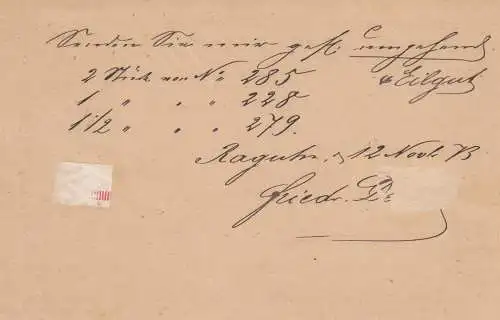 Senden Sie mir gefl. umgehend
2 Stück von No 285 & Eilgut
1 " " " 228
1 1/2 " " " 279.
Raguhn, 12 Novb. 73
Friedr.